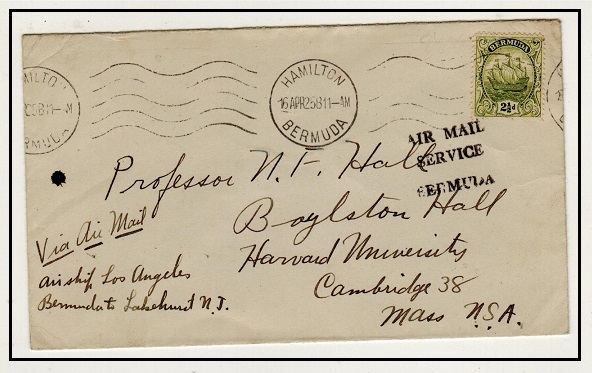 BERMUDA
2½d
HAMILTON
16APR25B11-AM
BERMUDA
AIR MAIL
SERVICE
BERMUDA
Professor N. F. Hall
Boylston Hall
Harvard University
Cambridge 38
Mass U.S.A.
Via Air Mail
airship Los Angeles
Bermuda to Lakehurst N.J.